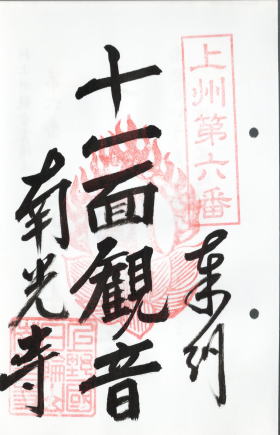 上州第六番
奉納
十一面観音
南光寺